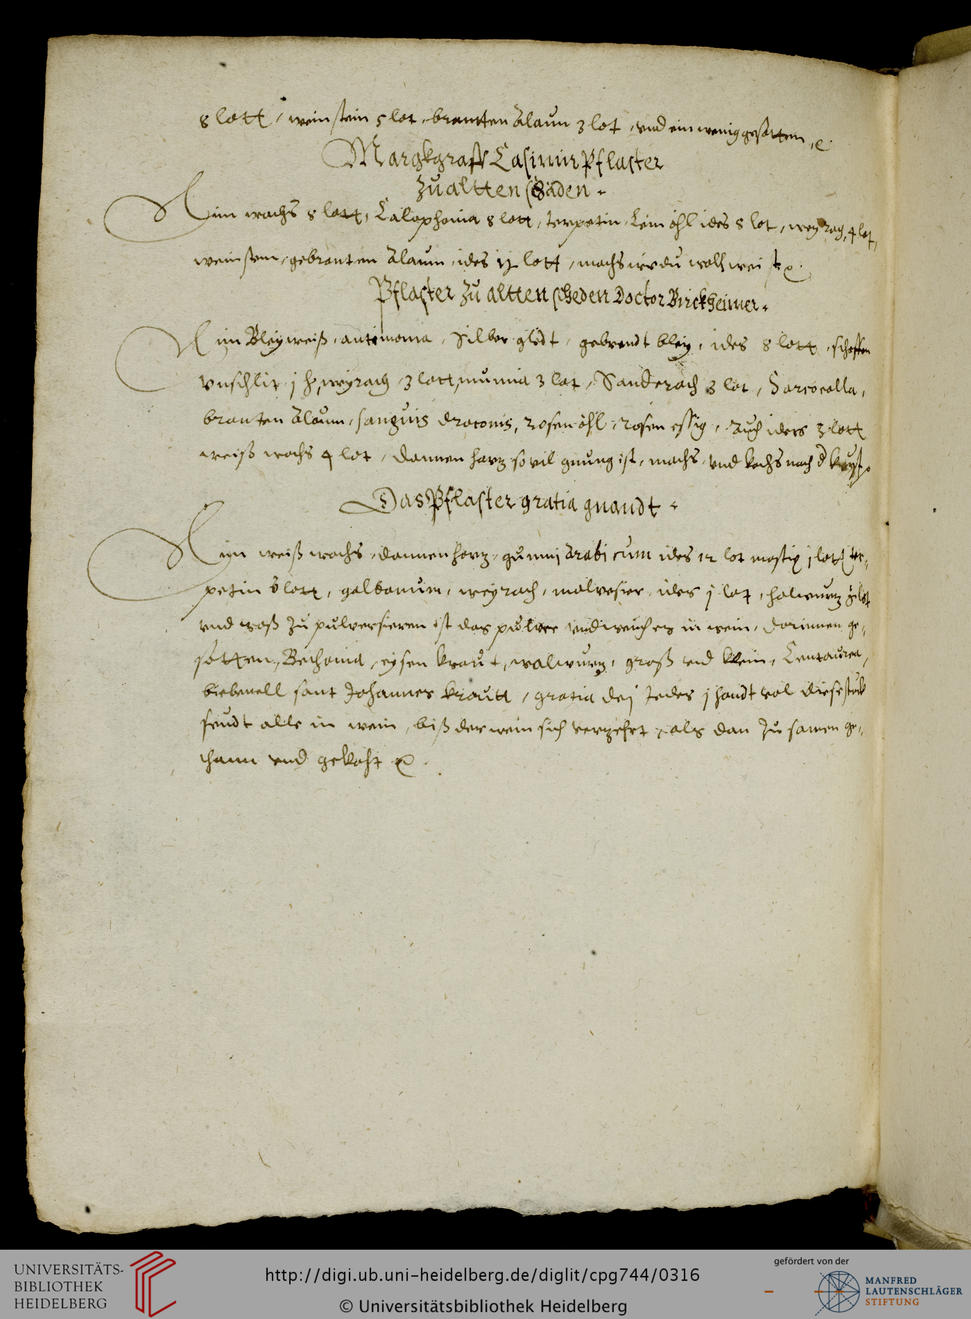 8 lott, weinstein 5 lot, brantten Alaun 3 lot, vnd ein wenig gesotten,
Margkgraff Casimir Pflaster
Zu altten Schäden.
Nim wachs 8 lott, Calaphonia 8 lott, terpetin, Lein öhl ides 8 lot, weyrach 4 lot,
weinstein, gebranten Alaun, ides lott, machs wie du wolst
Pflaster zu altten Scheden Doctor Birckheimer.
Nim Bleyweiß, antimonia, Silber glödt, gebrandt bley, ides 8 lott, schaffen
Vnschlit j weyrach 3 lott, mumia 3 lot, Sanderach 3 lot, Sarcocolla,
branten Alaun, sanguis draconis, rosen öhl, rosen essig, Auch ides 3 lott
weiß wachs 4 lot, dannen hartz so vil gnung ist, machs vnd kochs nach d
Das Pflaster gratia gnandt.
Nim weiß wachs, dannen hartz, gummi Arabicum ides 12 lot mastix j lott ter-
petin lott, galbanum, weyrach, malvesier, ides j lot, holwurtz lot
vnd waß zu pulversieren ist das pulver vnd weichs in wein, darinnen ge-
sotten, Bethonia, eysen kraut, walwurtz, groß vnd klein, Centaurea,
biebenell sant Johannes krautt, gratia dej Jedes j handt vol diese stuck
seudt alle in wein, biß der wein sich verzehrt, als dan zu samen ge-
than vnd gekocht
UNIVERSITÄTS-
BIBLIOTHEK
HEIDELBERG
http://digi.ub.uni-heidelberg.de/diglit/cpg744/0316
© Universitätsbibliothek Heidelberg
gefördert von der
MANFRED
LAUTENSCHLÄGER
STIFTUNG